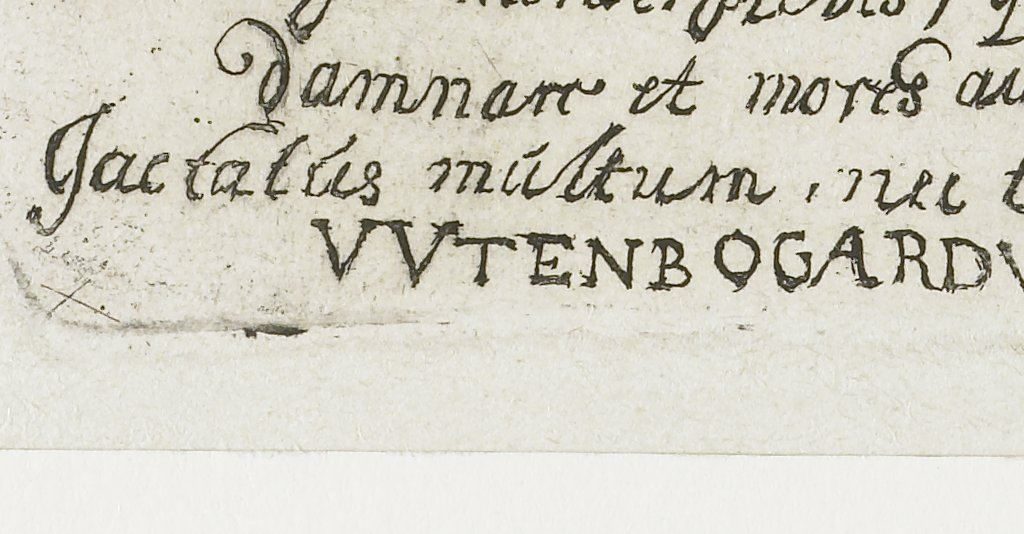 damnare et mores au
Jactatus multum, nec t
VVTENBOGARDV